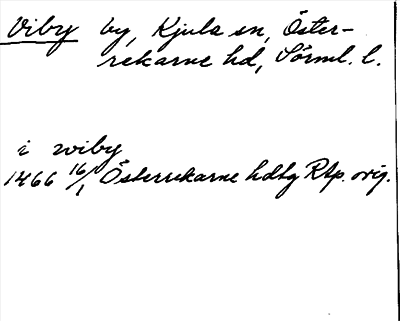 Viby by, Kjula sn, Öster-
rekarne hd, Sörml. l.
i wiby
1466 16/1 Österrekarne hdtg Rap. orig.